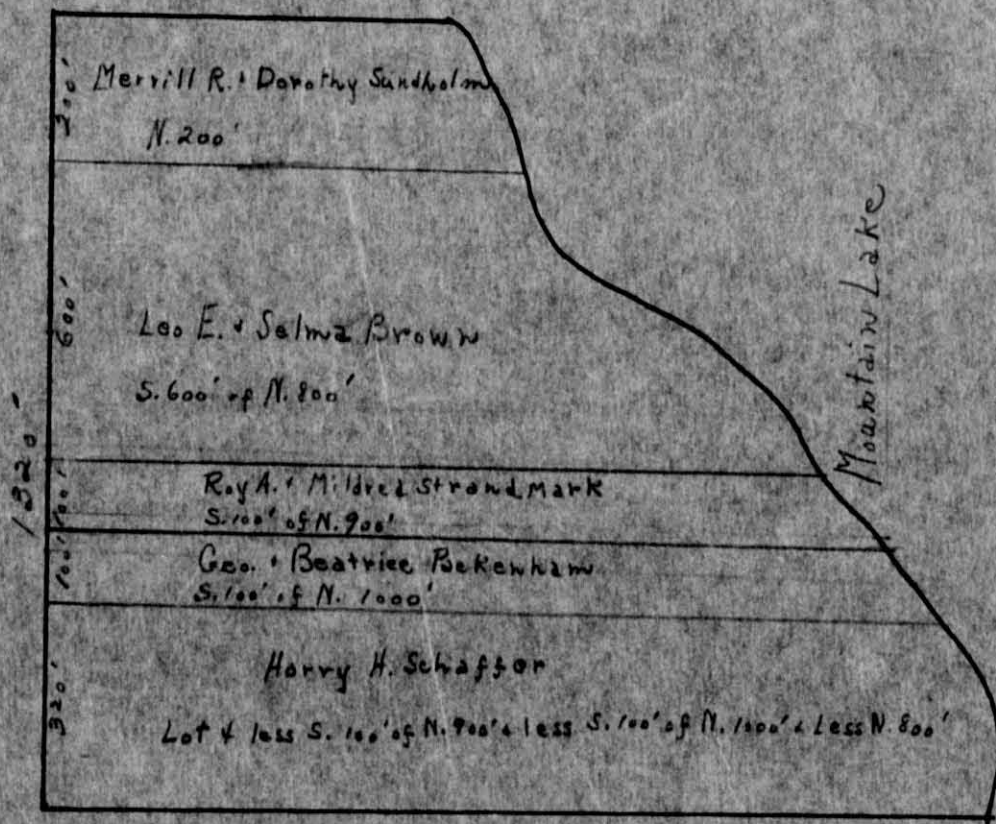 200'
Merrill R. & Dorothy Sundholm
N. 200'
600'
Leo E. & Selma Brown
S. 600' of N. 800'
Mountain Lake
1320'
100'
Roy A. & Mildred Strandmark
S. 100' of N. 900'
100'
Geo. & Beatrice Bekenham
S. 100' of N. 1000'
320'
Harry H. Schaffer
Lot 4 less S. 100' of N. 900' & less S. 100' of N. 1000' & Less N. 800'